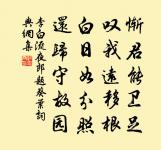 惭君能卫足
叹我远移根
白日如分照
还归守故园
李白流夜郎题葵叶词
典网集